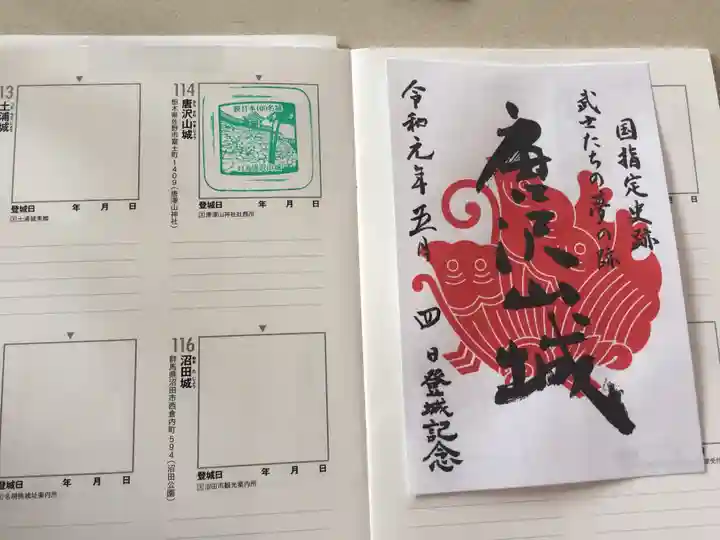 13
土浦城
登城日 年 月 日
土浦城東櫓
114
唐沢山城
栃木県佐野市富士町1409(唐澤山神社)
続日本100名城
登城日 年 月 日
唐澤山神社社務所
登城日 年 月 日
名胡桃城址案内所
116
沼田城
群馬県沼田市西倉内町594(沼田公園)
登城日 年 月 日
沼田市観光案内所
国指定史跡
武士たちの夢の跡
唐沢山城
令和元年五月四日登城記念